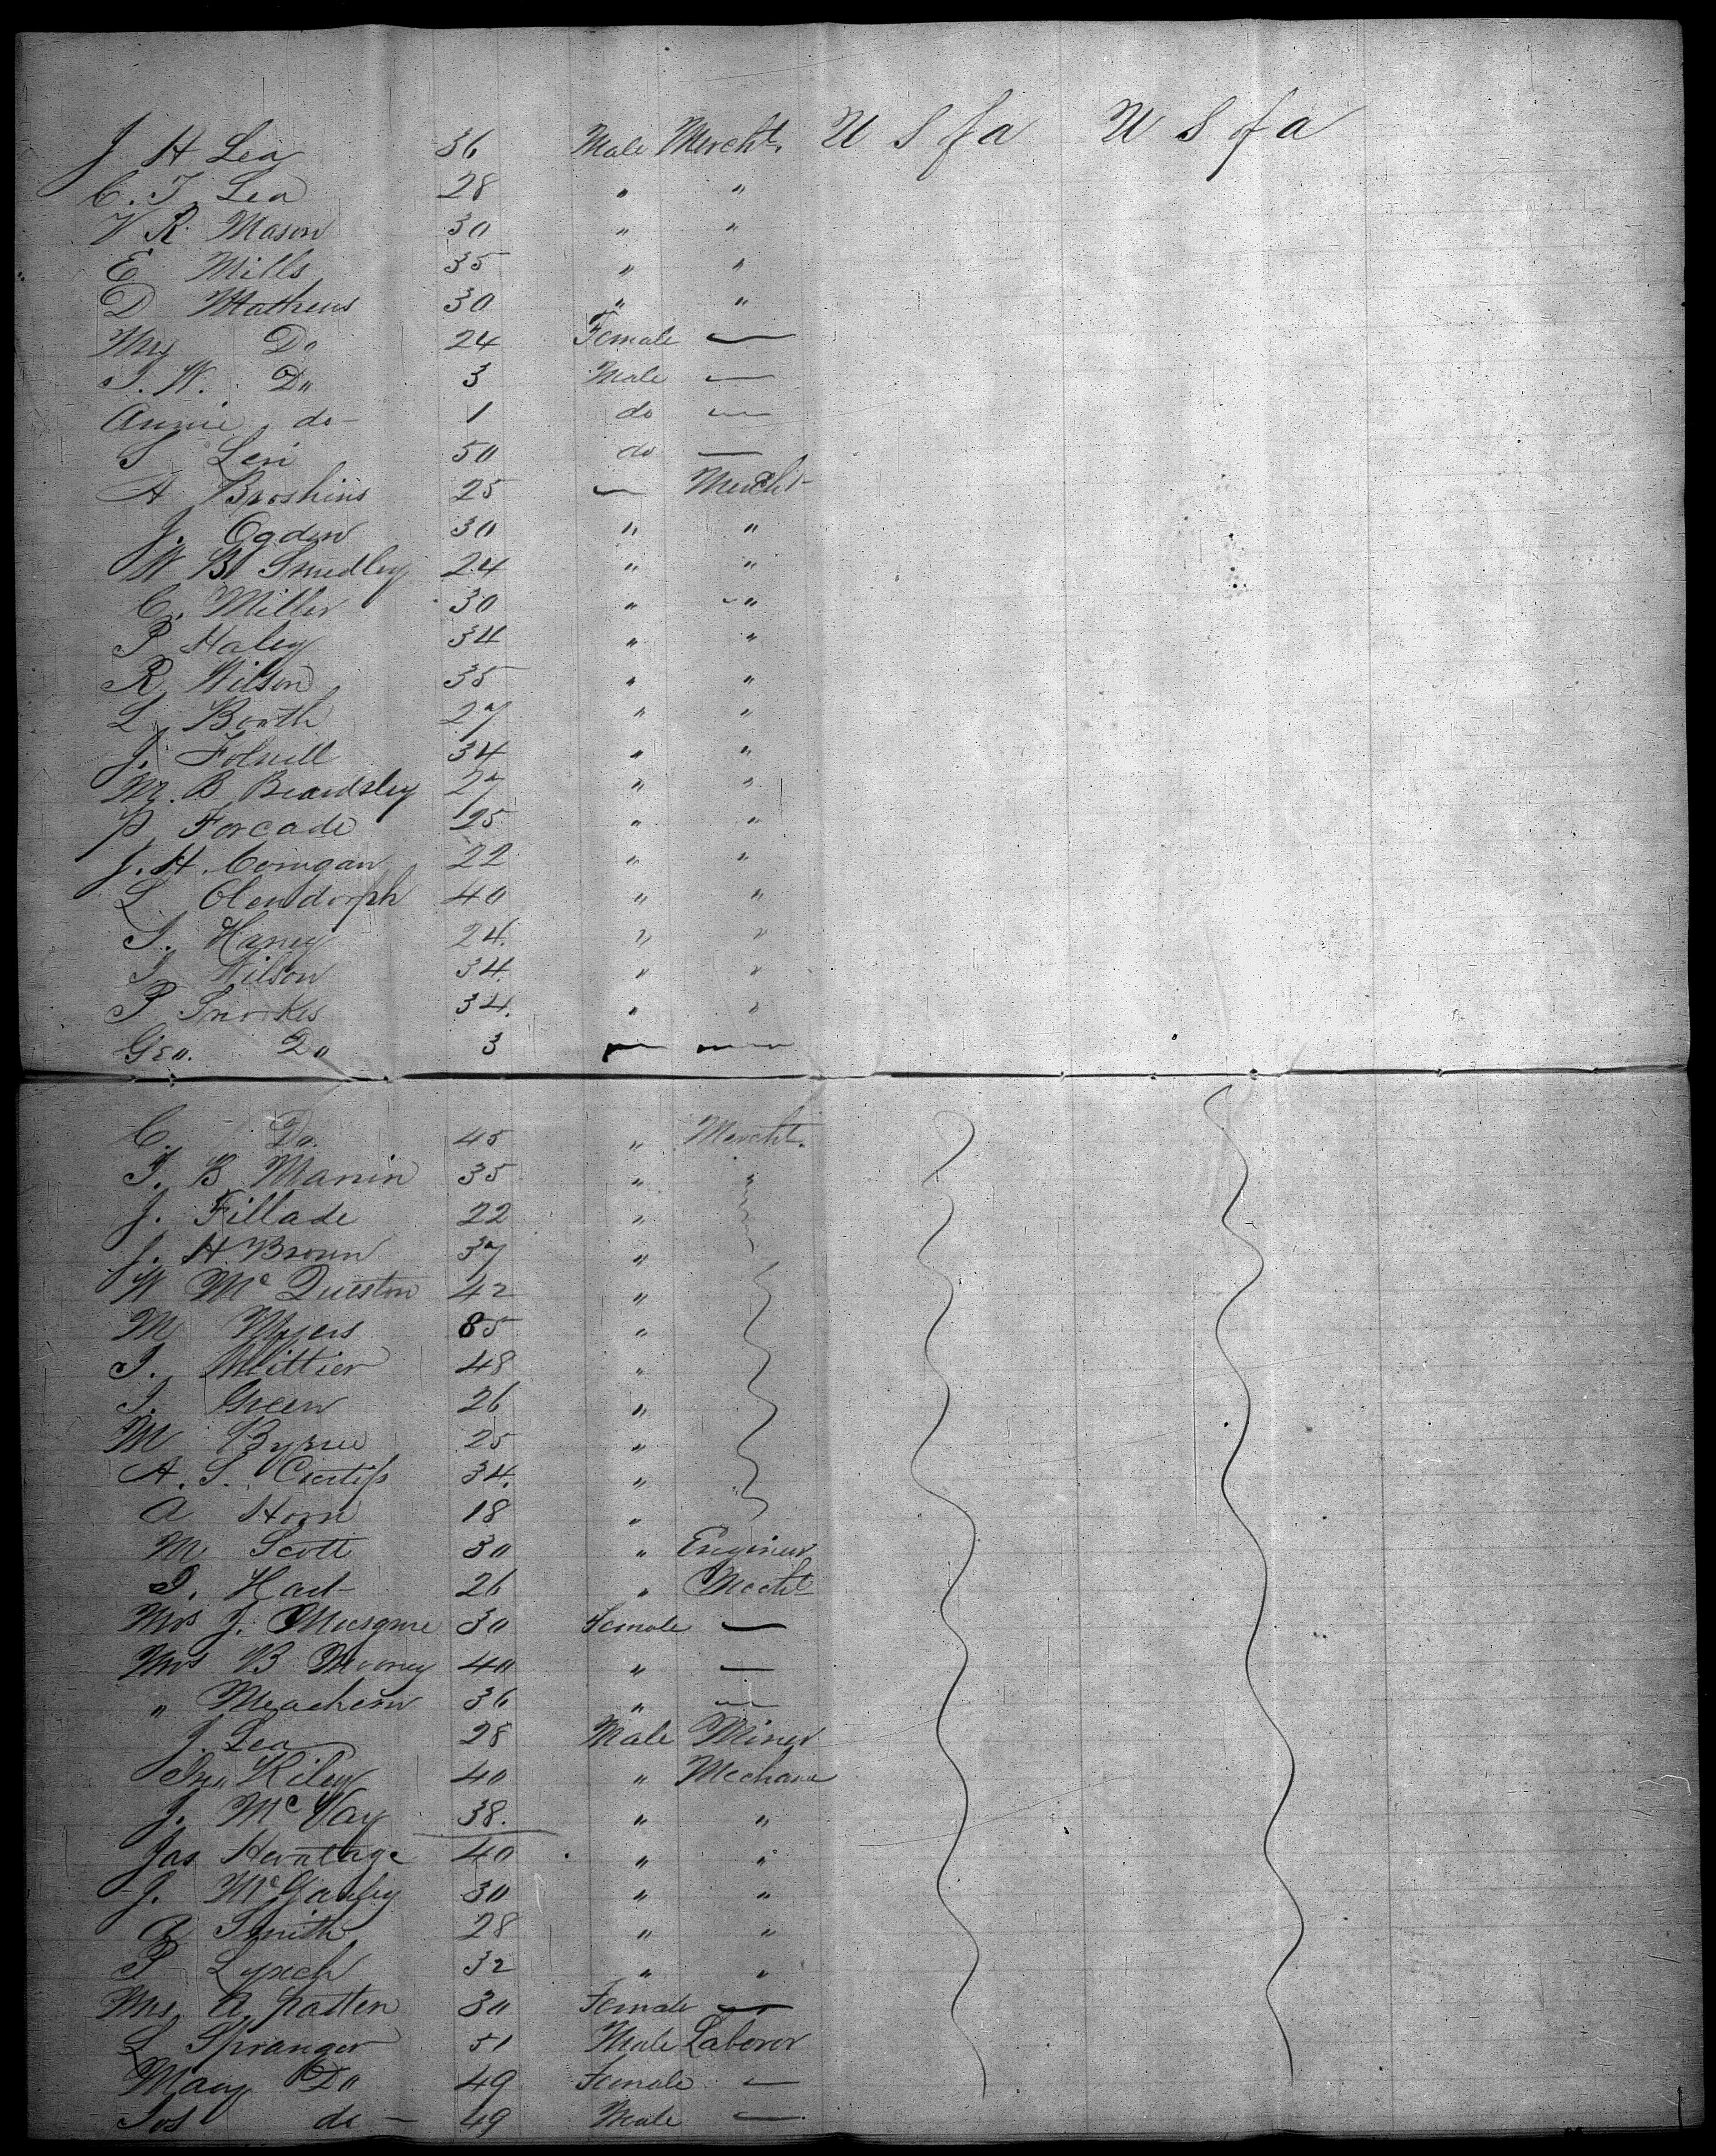 J H Lea 36 Male Mercht. U S of a U S of a
C. T. Lea 28 " "
V R. Mason 30 " "
E Mills 35 " "
D Mathews 30 " "
Mrs Do 24 Female —
J. W. Do 3 Male —
Annie do — 1 do —
S Levi 50 do —
A Broshins 25 — Mercht
J. Ogden 30 " "
W B Smedley 24 " "
C. Miller 30 " "
P Haley 34 " "
R Wilson 35 " "
L Booth 27 " "
J. 34 " "
Mr. B Beardsley 27 " "
P Forcade 25 " "
J. H. Corrigan 22 " "
L Olendorph 40 " "
S. Haney 24. " "
J Wilson 34. " "
P Snookes 34. " "
Geo. Do 3 — —
C. Do. 45 " Mercht.
J. B Marvin 35 " "
J. Fillade 22 "
J. H Brown 37 "
W McQueston 42 "
M Myers 85 "
J. Whittier 48 "
J. Green 26 "
M Byrne 25 "
A. S. Curtiss 34. "
A Horn 18 "
M Scott 30 " Engineer
J. Hart 26 " Mecht
Mrs J. Musgrove 30 Female —
Mrs B Mooney 40 " —
" Meachem 36 " —
J. Lea 28 Male Miner
Jno Riley 40 " Mechanic
J. McVay 38. " "
Jas Heratage 40 " "
J. 30 " "
A Smith 28 " "
P Lynch 32 " "
Mrs A Patten 30 Female —
L Spranger 51 Male Laborer
Mary Do 49 Female —
Jos do — 49 Male —